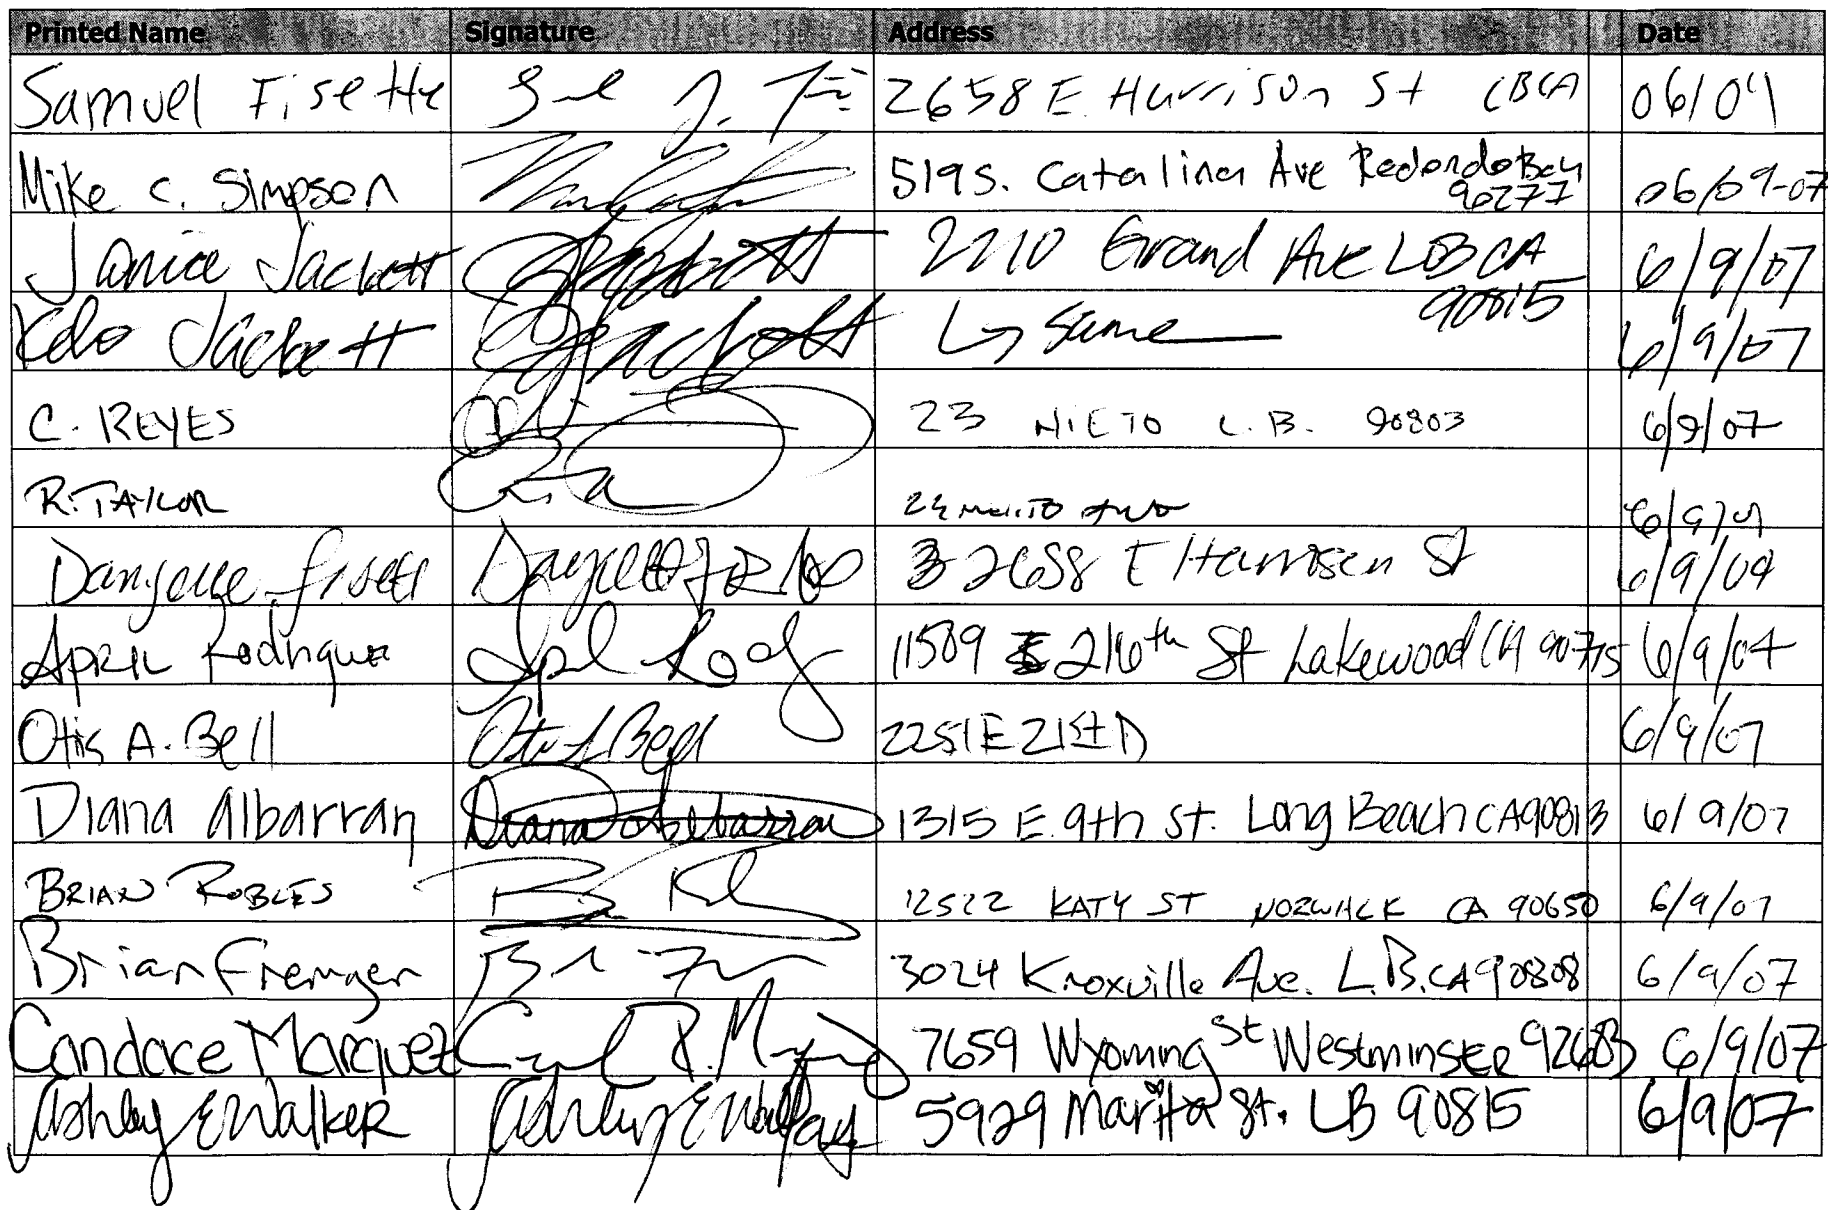 Printed Name Signature Address Date
Samuel Fisette 2658 E. Harrison St LBCA 06/09
Mike C. Simpson 519 S. Catalina Ave Redondo Bch 90277 06/09-07
Janice Jackett JJackett 2210 Grand Ave LB CA 90815 6/9/07
Jackett Jackett Same 6/9/07
C. REYES 23 NIETO L.B. 90803 6/9/07
R. TAYLOR 6/9/07
Danyelle Fisette 2658 E Harrison St 6/9/07
APRIL Rodriguez April Rodg 11589 216th St Lakewood CA 90715 6/9/07
Otis A. Bell Otis A Bell 2251 E 21st D 6/9/07
Diana Albarran Diana Albarran 1315 E. 9th St. Long Beach CA 90813 6/9/07
BRIAN ROBLES 12522 KATY ST NORWALK CA 90650 6/9/07
Brian Fremger 3024 Knoxville Ave. L.B. CA 90808 6/9/07
Candace Marquez 7659 Wyoming St Westminster 92683 6/9/07
Ashley E Walker Ashley E Walker 5929 Marita St. LB 90815 6/9/07